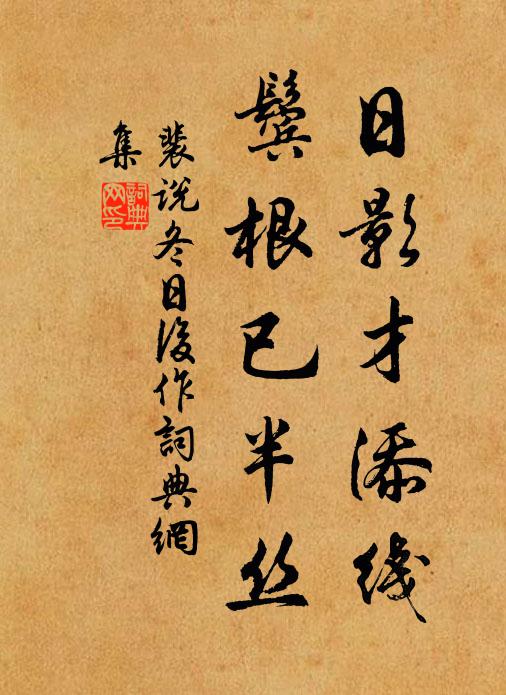 日影才添线
鬓根已半丝
裴说冬日後作詞典網
集
詞典网印